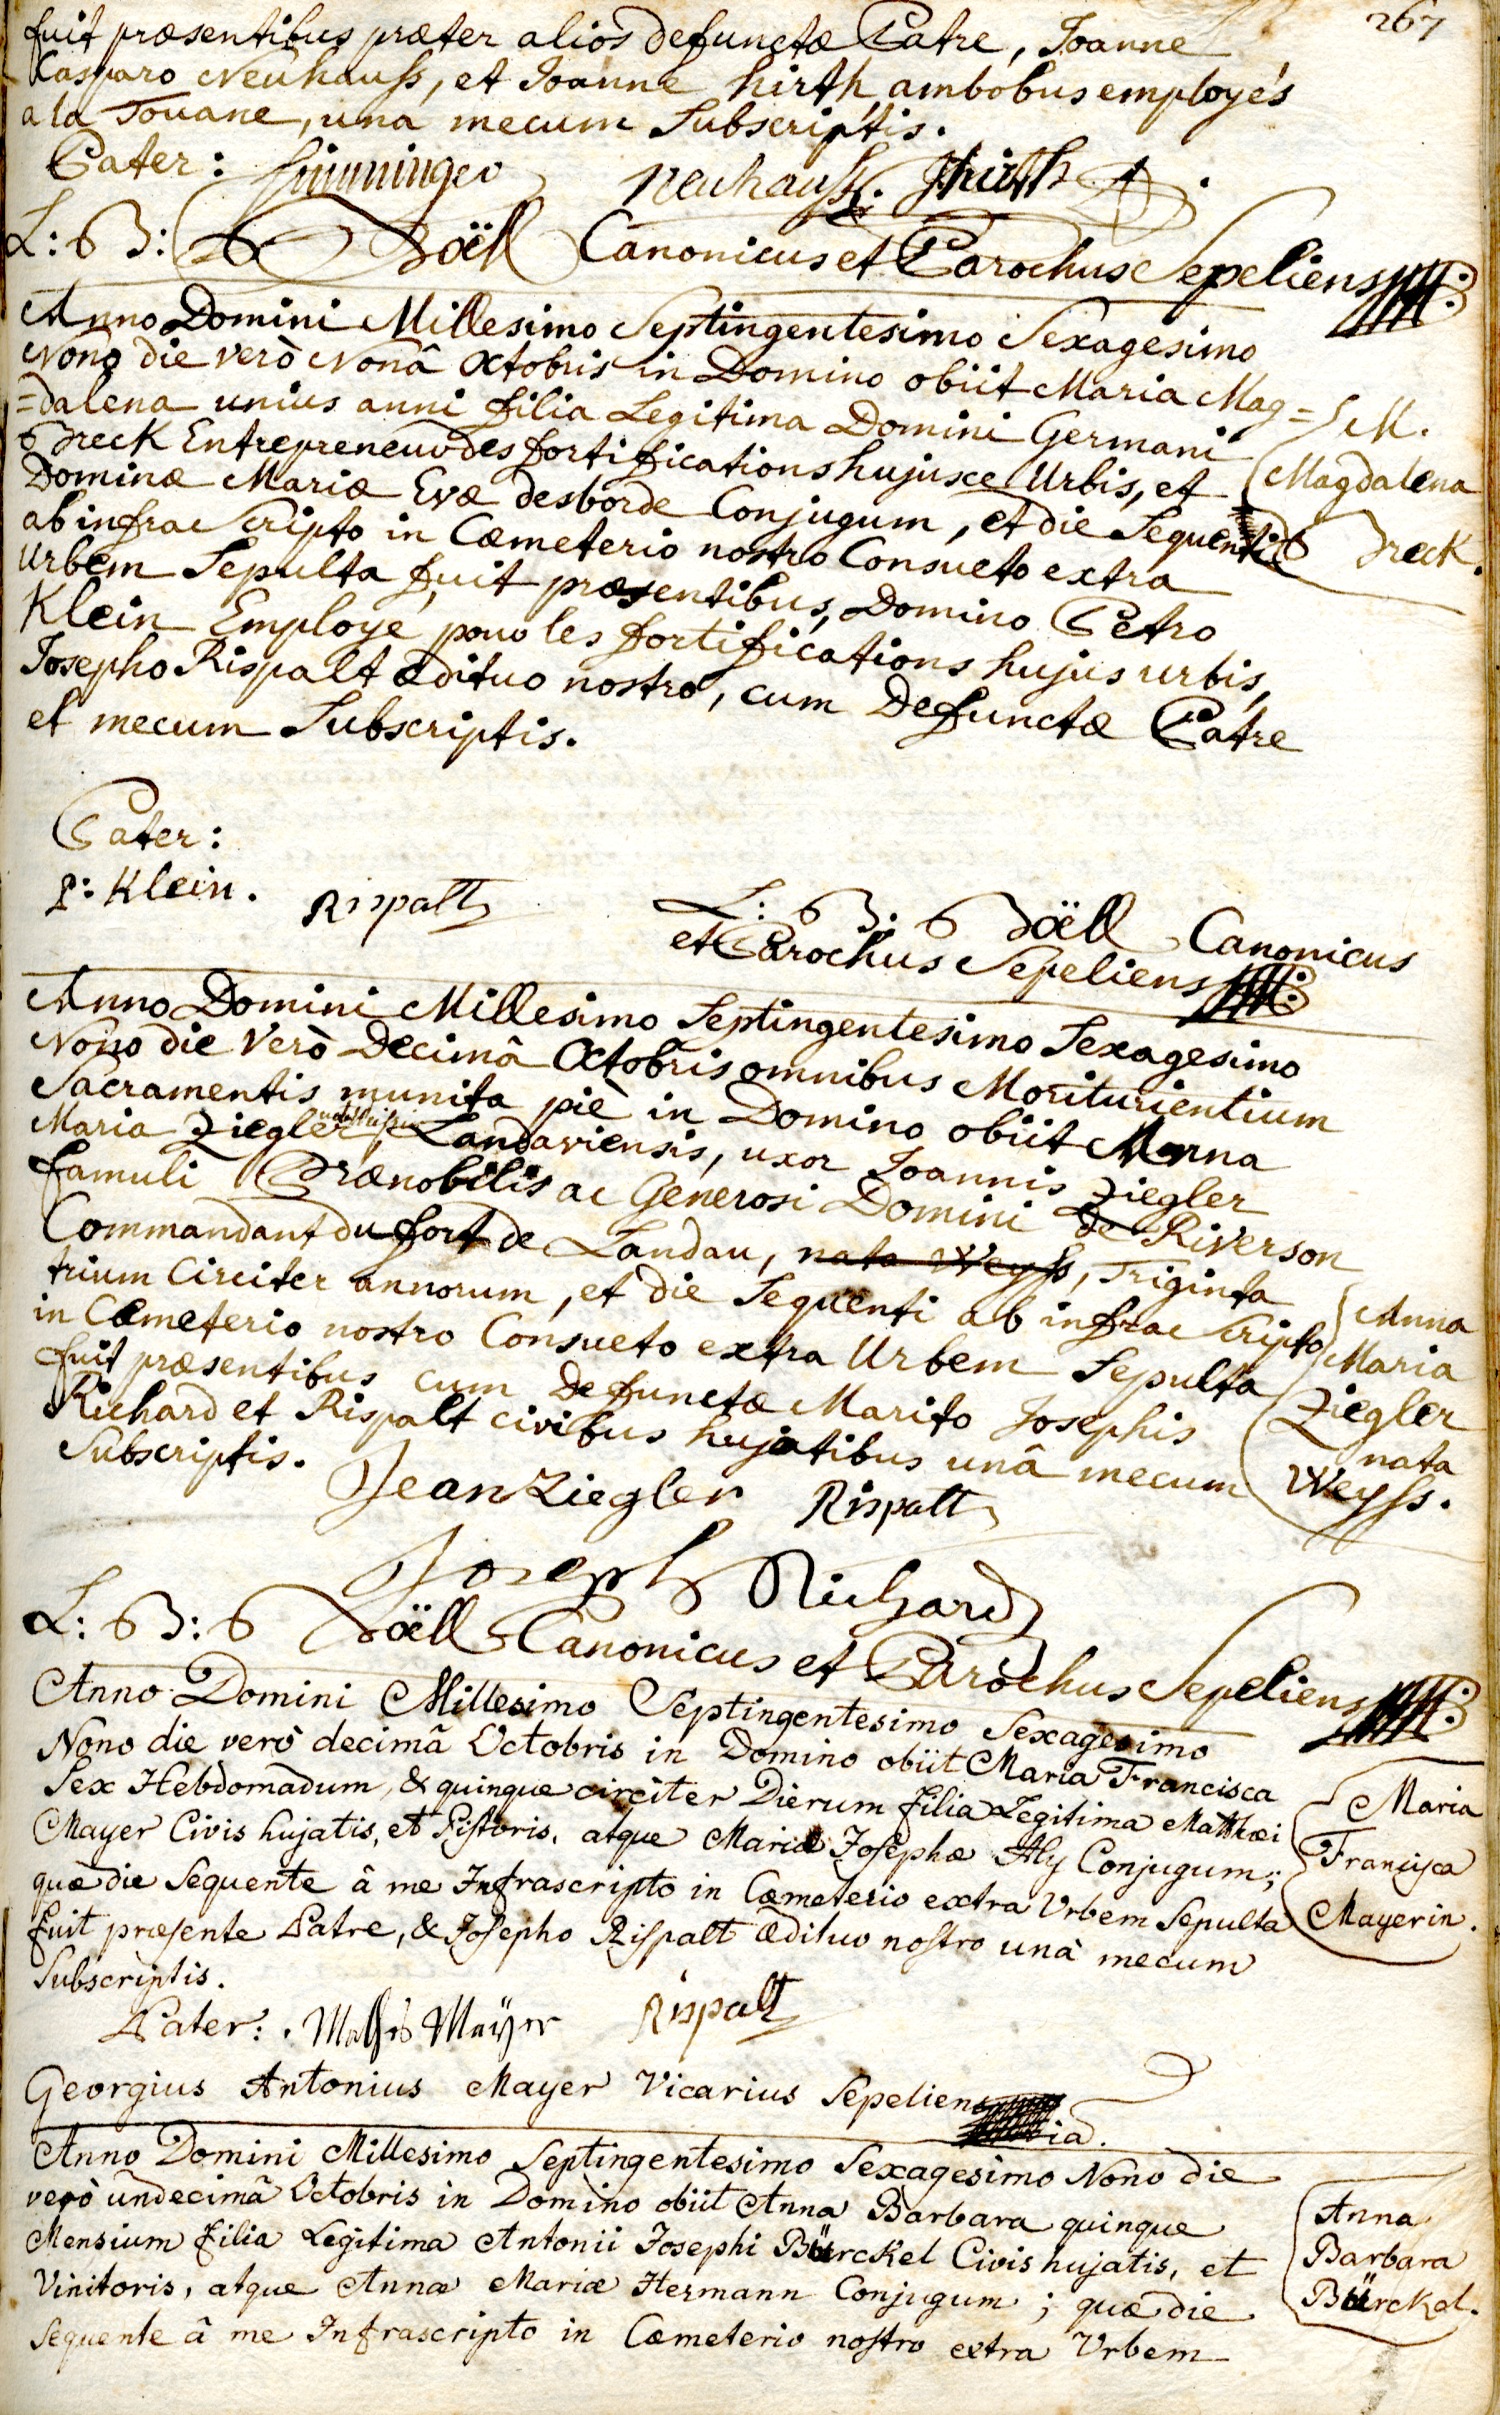 267
fuit præsentibus præter alios defunctæ Patre, Joanne
Casparo Neuhauss, et Joanne hirth, ambobus employés
a la Douane, una mecum Subscriptis.
Pater: neuhauss. JHirth
L: B: Boëll Canonicus et Parochus Sepeliens
Anno Domini Millesimo Septingentesimo Sexagesimo
Nono die verò Nonâ Octobris in Domino obiit Maria Mag=
=dalena unius anni filia Legitima Domini Germani
Breck Entrepreneur des fortifications hujusce Urbis, et
Dominæ Mariæ Evæ desborde Conjugum, et die Sequenti
ab infrascripto in Cœmeterio nostro Consueto extra
Urbem Sepulta fuit præsentibus, Domino Petro
Klein Employé pour les fortifications hujus urbis,
Josepho Rispalt ædituo nostro, cum Defunctæ Patre
et mecum Subscriptis.
M.
Magdalena
Breck.
Pater:
P: Klein. Rispalt
L: B: Boëll Canonicus
et Parochus Sepeliens
Anno Domini Millesimo Septingentesimo Sexagesimo
Nono die Verò Decimâ Octobris omnibus Moriturientium
Sacramentis munita piè in Domino obiit Anna
Maria Ziegler, Landaviensis, uxor Joannis Ziegler
famuli Prænobilis ac Generosi Domini de Riverson
Commandant du fort de Landau, nata Weyss, Triginta
trium Circiter annorum, et die Sequenti ab infrascripto
in Cœmeterio nostro Consueto extra Urbem Sepulta
fuit præsentibus cum Defunctæ Marito Josephis
Richard et Rispalt civibus hujatibus unâ mecum
Subscriptis.
Anna
Maria
Ziegler
nata
Weyss.
Jean Ziegler Rispalt
Joseph Richard
L: B: Boëll Canonicus et Parochus Sepeliens
Anno Domini Millesimo Septingentesimo Sexagesimo
Nono die verò decimâ Octobris in Domino obiit Maria Francisca
Sex Hebdomadum, & quinque circiter Dierum filia Legitima Matthæi
Mayer Civis hujatis, et Pistoris, atque Mariæ Josephæ Aly Conjugum;
quæ die Sequente â me Infrascripto in Cœmeterio extra Urbem Sepulta
fuit præsente Patre, & Josepho Rispalt Ædituo nostro unà mecum
Subscriptis.
Maria
Francisca
Mayerin.
Pater: Mathis Mayer Rispalt
Georgius Antonius Mayer Vicarius Sepeliens
Anno Domini Millesimo Septingentesimo Sexagesimo Nono die
verò undecimâ Octobris in Domino obiit Anna Barbara quinque
Mensium filia Legitima Antonii Josephi Bürckel Civis hujatis, et
Vinitoris, atque Annæ Mariæ Hermann Conjugum; quæ die
Sequente â me Infrascripto in Cœmeterio nostro extra Urbem
Anna
Barbara
Bürckel.